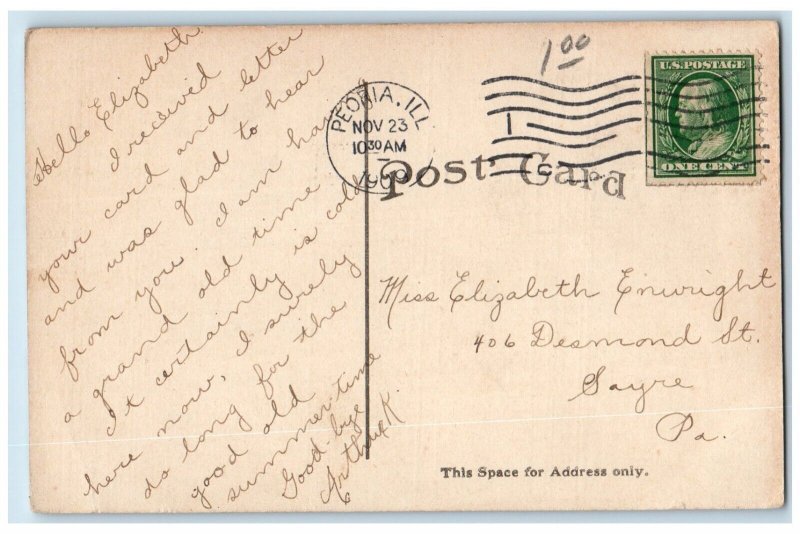 Hello Elizabeth
I received
your card and letter
and was glad to hear
from you. I am having
a grand old time
It certainly is cold
here now, I surely
do long for the
good old
summer-time
Good-bye
Arthur K.
PEORIA, ILL.
NOV 23
10 30 AM
1909
1
1 00
U.S. POSTAGE
ONE CENT
Post Card
Miss Elizabeth Enwright
406 Desmond St.
Sayre
Pa.
This Space for Address only.